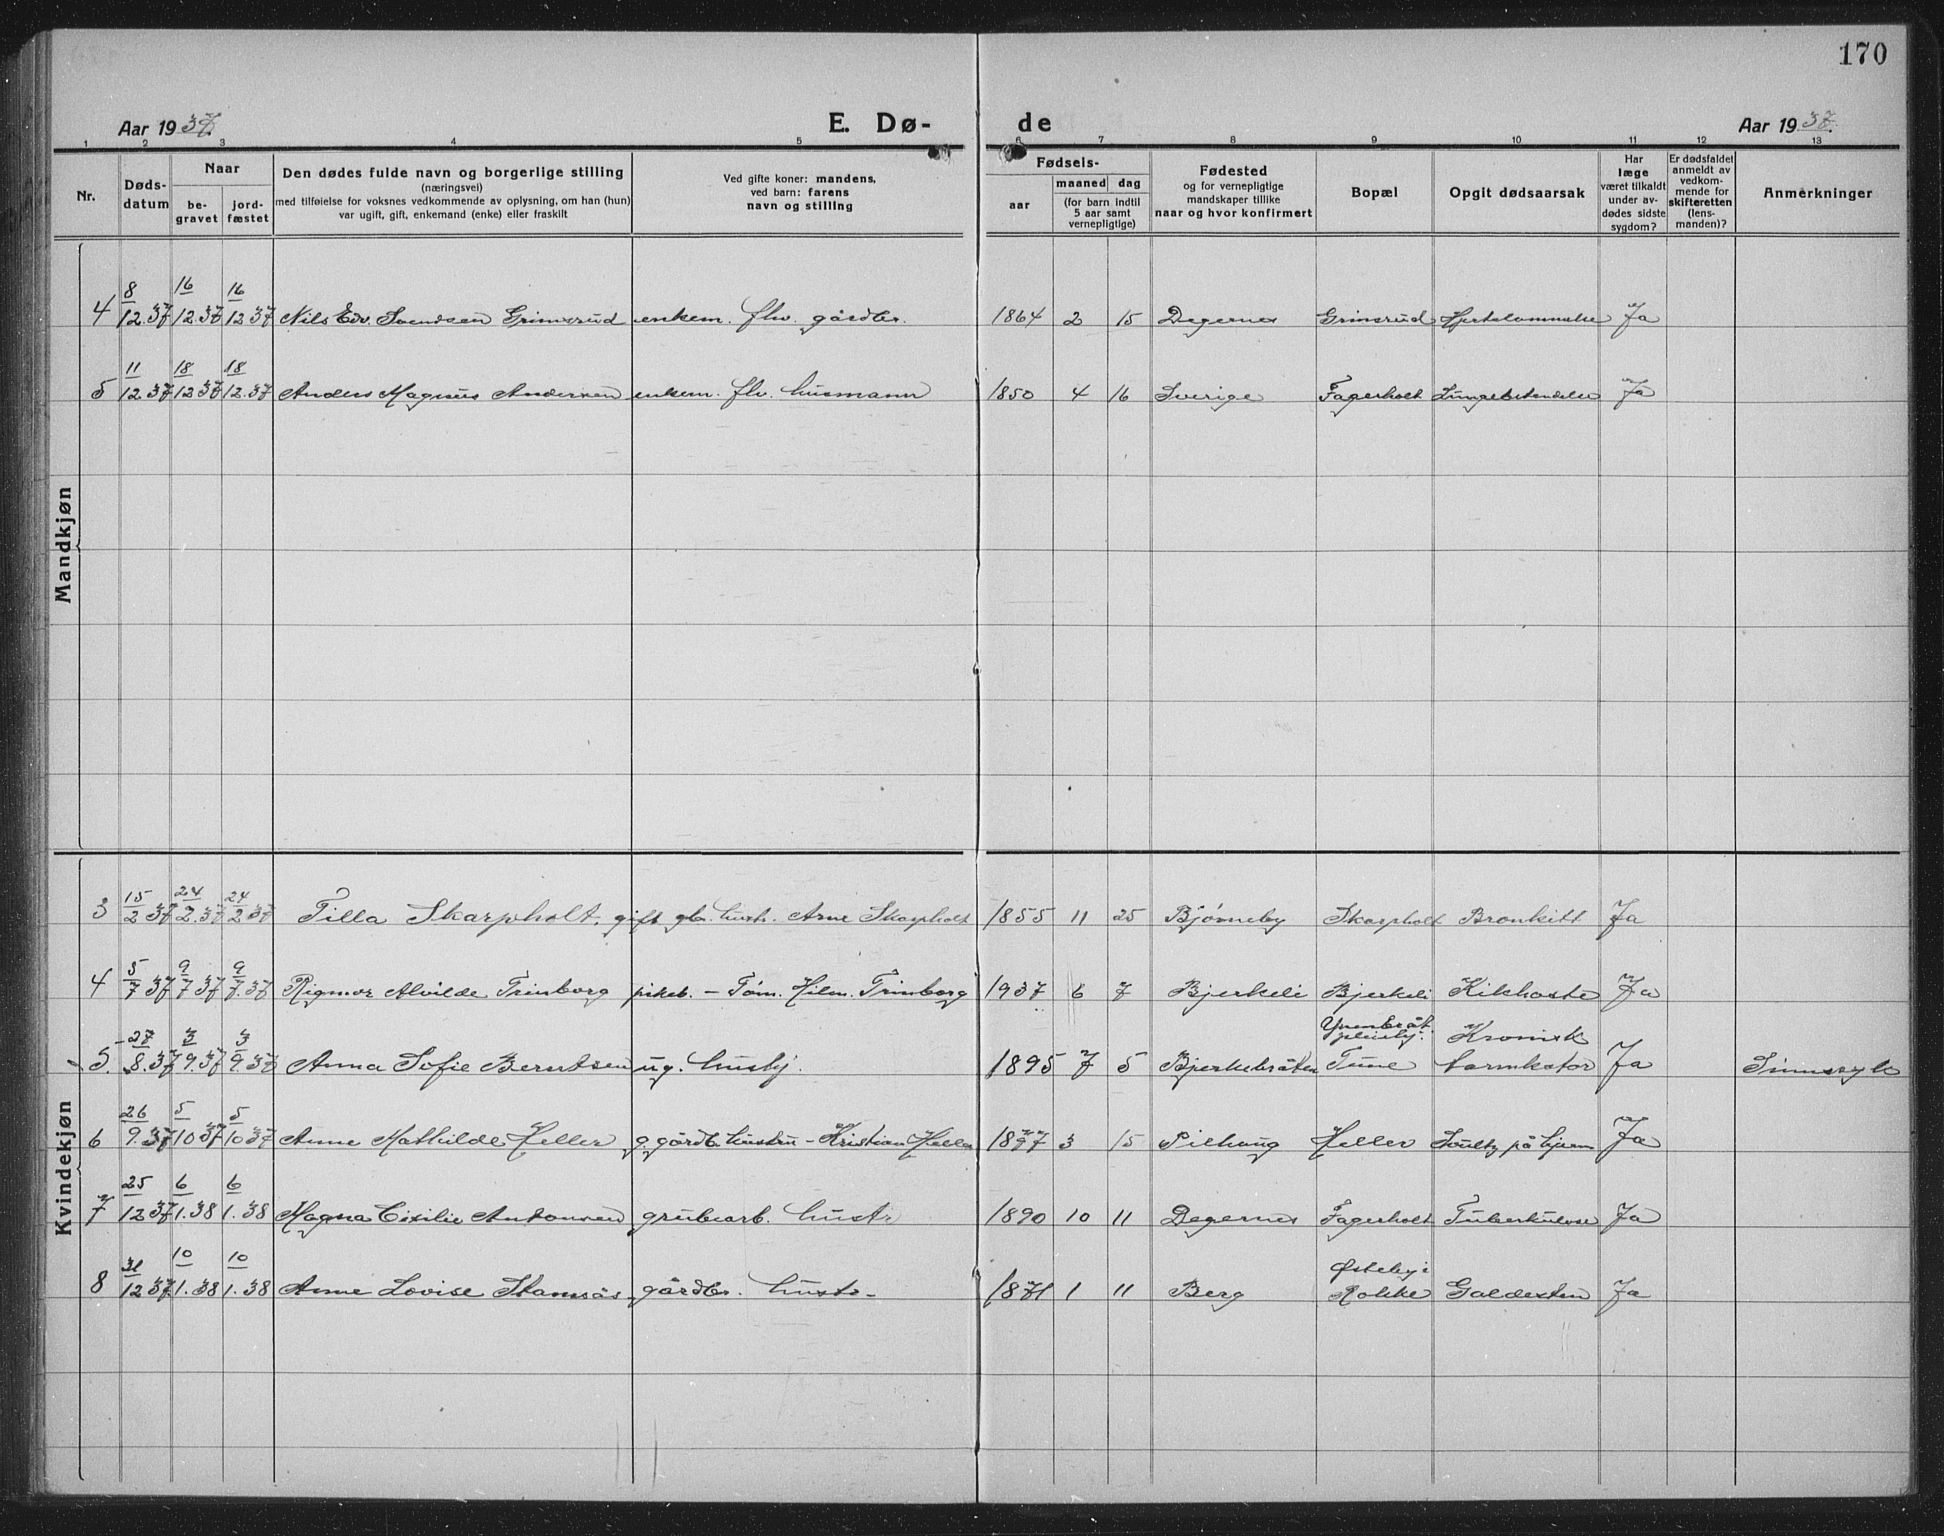 170
Aar 1937. E. Dø- de Aar 1937.
1 2 3 4 5 6 7 8 9 10 11 12 13
Nr.
Døds-
datum
Naar
be-
gravet
jord-
fæstet
Den dødes fulde navn og borgerlige stilling
(næringsvei)
med tilføielse for voksnes vedkommende av oplysning, om han (hun)
var ugift, gift, enkemand (enke) eller fraskilt
Ved gifte koner: mandens,
ved barn: farens
navn og stilling
Fødsels-
aar
maaned dag
(for barn indtil
5 aar samt
vernepligtige)
Fødested
og for vernepligtige
mandskaper tillike
naar og hvor konfirmert
Bopæl
Opgit dødsaarsak
Har
læge
været tilkaldt
under av-
dødes sidste
sygdom?
Er dødsfaldet
anmeldt av
vedkom-
mende for
skifteretten
(lens-
manden)?
Anmerkninger
Mandkjøn
4 8/12.37 16/12.37 16/12 37 Nils Edv. Svendsen Grimsrud enkem. fhv. gårdbr. 1864 2 15 Degernes Grimsrud Hjertelammelse Ja
5 11/12 37 18/12 37 18/12.37 Anders Magnus Andersen enkem. fhv. husmann 1850 4 16 Sverige Fagerholt Lungebetendelse Ja
Kvindekjøn
3 15/2 37 24/2.37 24/2 37 Tilla Skarpholt, gift gbr. hustr. Arne Skarpholt 1855 11 25 Bjørneby Skarpholt Bronkitt Ja
4 5/7 37 9/7 37 9/7.37 Rigmor Alvilde Trinborg pikeb. – Tøm. Hilm. Trinborg 1937 6 7 Bjerkeli Bjerkeli Kikhoste Ja
5. 27/8.37 3/9.37 3/9 37 Anna Sofie Berntsen ug. hushj. 1895 7 5 Bjerkebråten Tune Kronisk tarmkatar Ja Sinnssyk
6 26/9.37 5/10 37 5/10 37 Anne Mathilde Heller g. gårdbr. hustru – Kristian Heller 1897 3 15 Pilhaug Heller på hjem Ja
7 25/12 37 6/1.38 6/1.38 Magna Cisilie Antonsen grubearb. hustr. 1890 10 11 Degernes Fagerholt Tuberkulose Ja
8 31/12 37 10/1.38 10/1.38 Anne Lovise Stamsås – gårdbr. hustr. 1871 1 11 Berg Østeby i Rokke Galdesten Ja